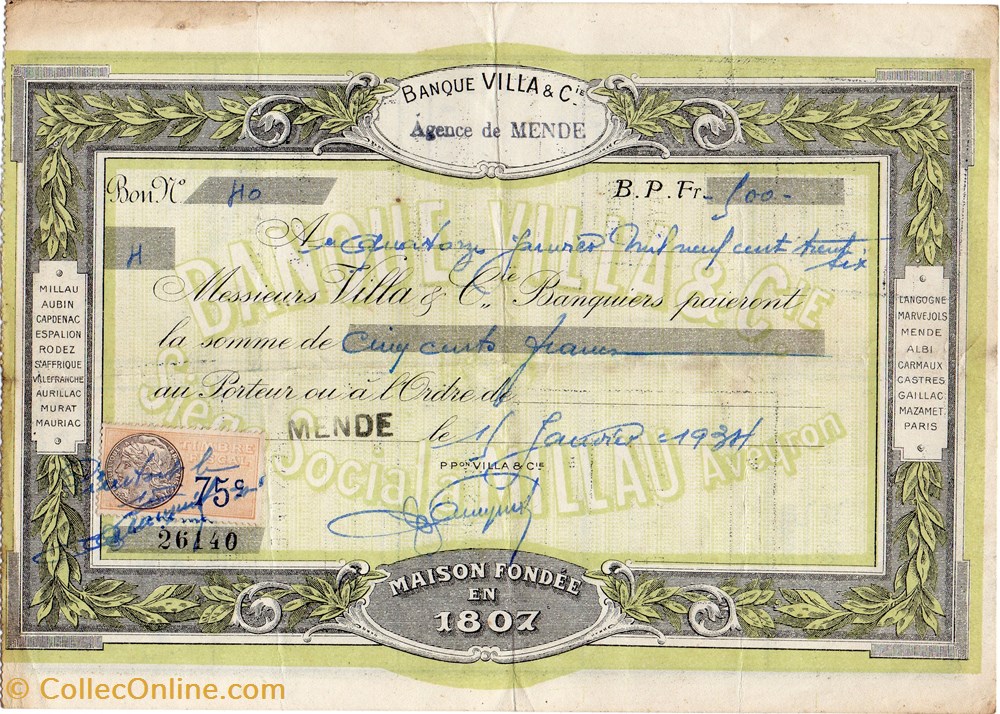 BANQUE VILLA & CIE
Agence de MENDE
Bon. No 40
B. P. Fr - 500 -
Le quatorze Janvier Mil neuf cent trente
six
H
Messieurs Villa & Cie Banquiers paieront
la somme de Cinq cents francs
au Porteur ou à l'Ordre de
MENDE le 15 Janvier 1934
PPON VILLA & CIE
BANQUE VILLA & CIE
Siège Social MILLAU Aveyron
MILLAU
AUBIN
CAPDENAC
ESPALION
RODEZ
ST AFFRIQUE
VILLEFRANCHE
AURILLAC
MURAT
MAURIAC
LANGOGNE
MARVEJOLS
MENDE
ALBI
CARMAUX
CASTRES
GAILLAC
MAZAMET.
PARIS
TIMBRE
75c
26140
MAISON FONDÉE
EN
1807
© CollecOnline.com